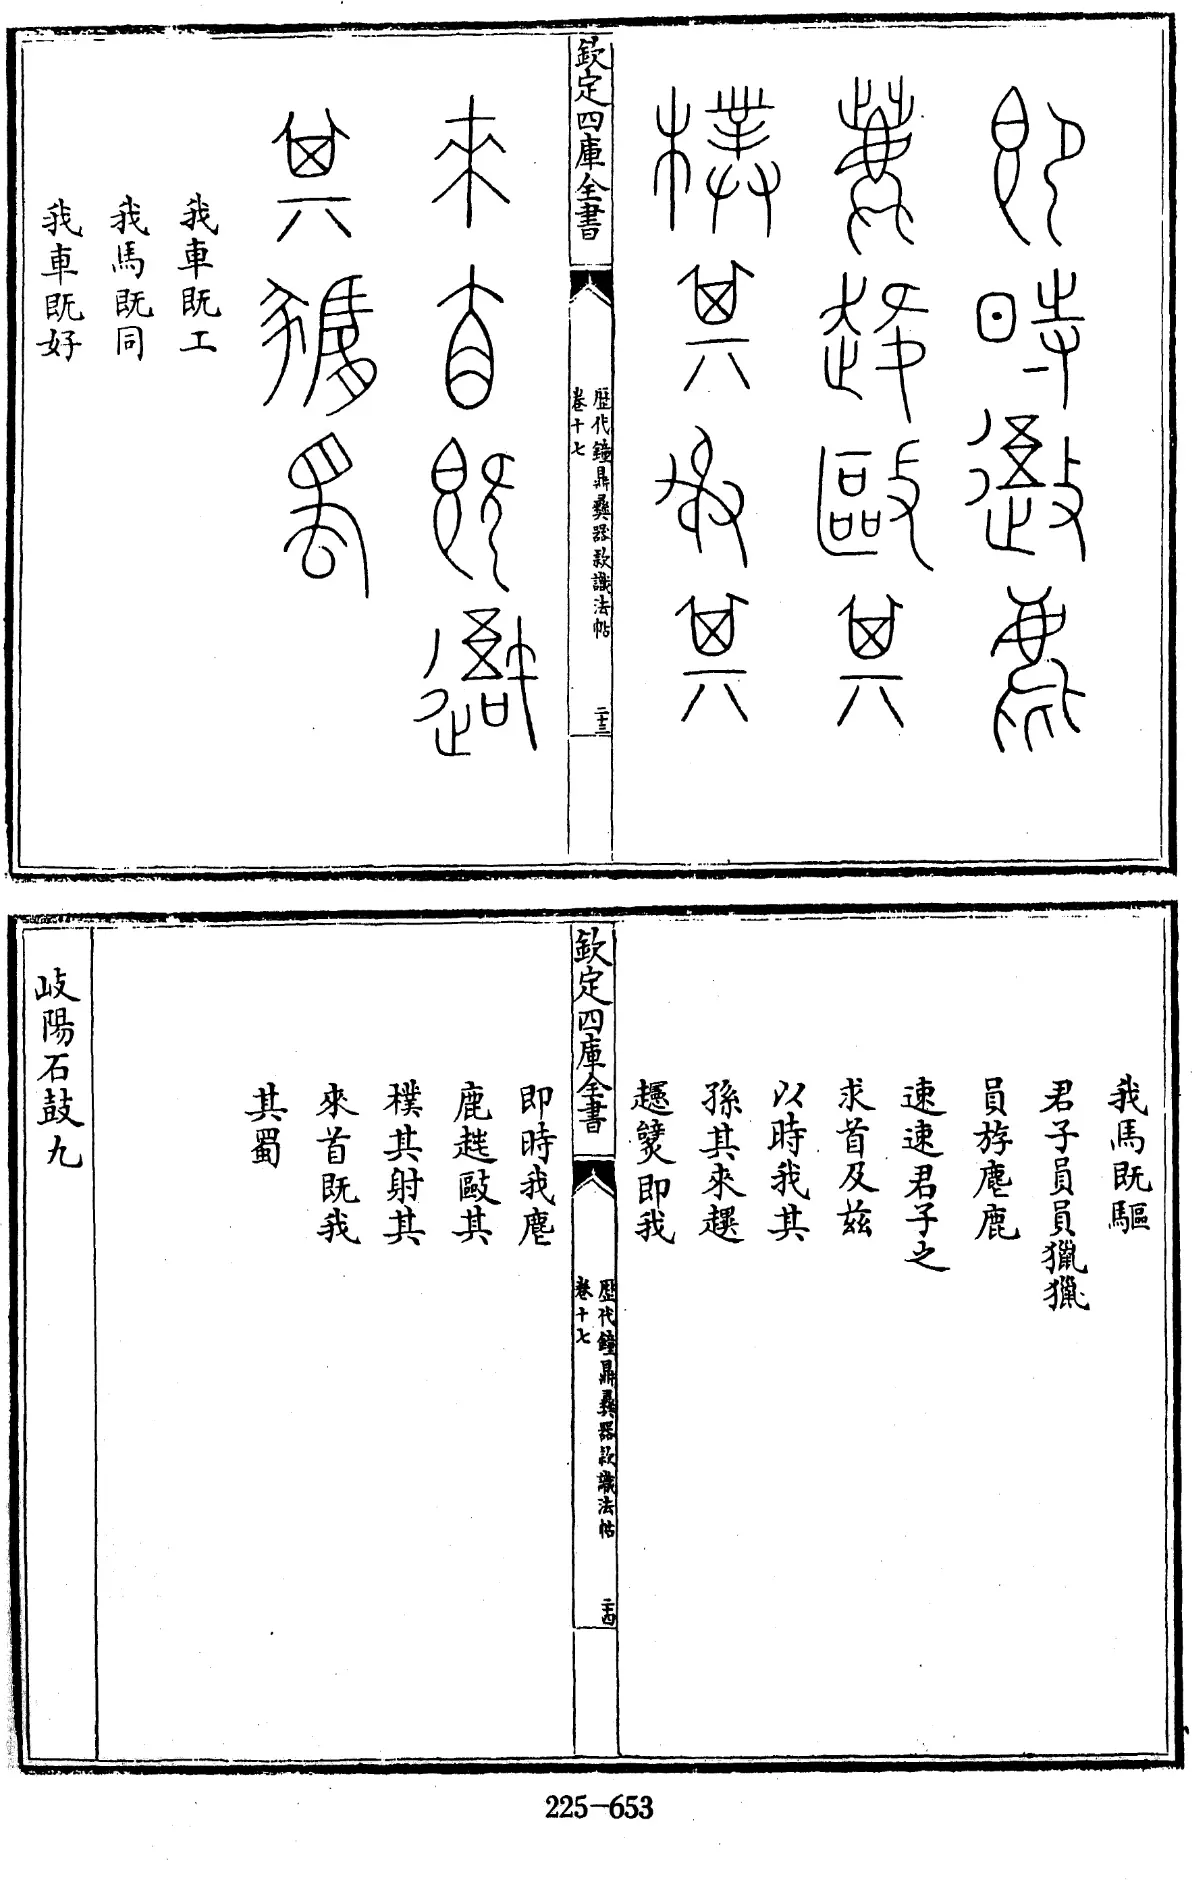 即時
鹿其
樸其其
欽定四庫全書
歷代鐘鼎彝器款識法帖
卷十七
二十三
來首既
其
我車既工
我馬既同
我車既好
我馬既驅
君子員員獵獵
員斿麀鹿
速速君子之
求首及茲
以時我其
孫其來趩
即我
欽定四庫全書
歷代鐘鼎彝器款識法帖
卷十七
二十四
即時我麀
鹿趚敺其
樸其射其
來首既我
其蜀
岐陽石鼓九
225-653